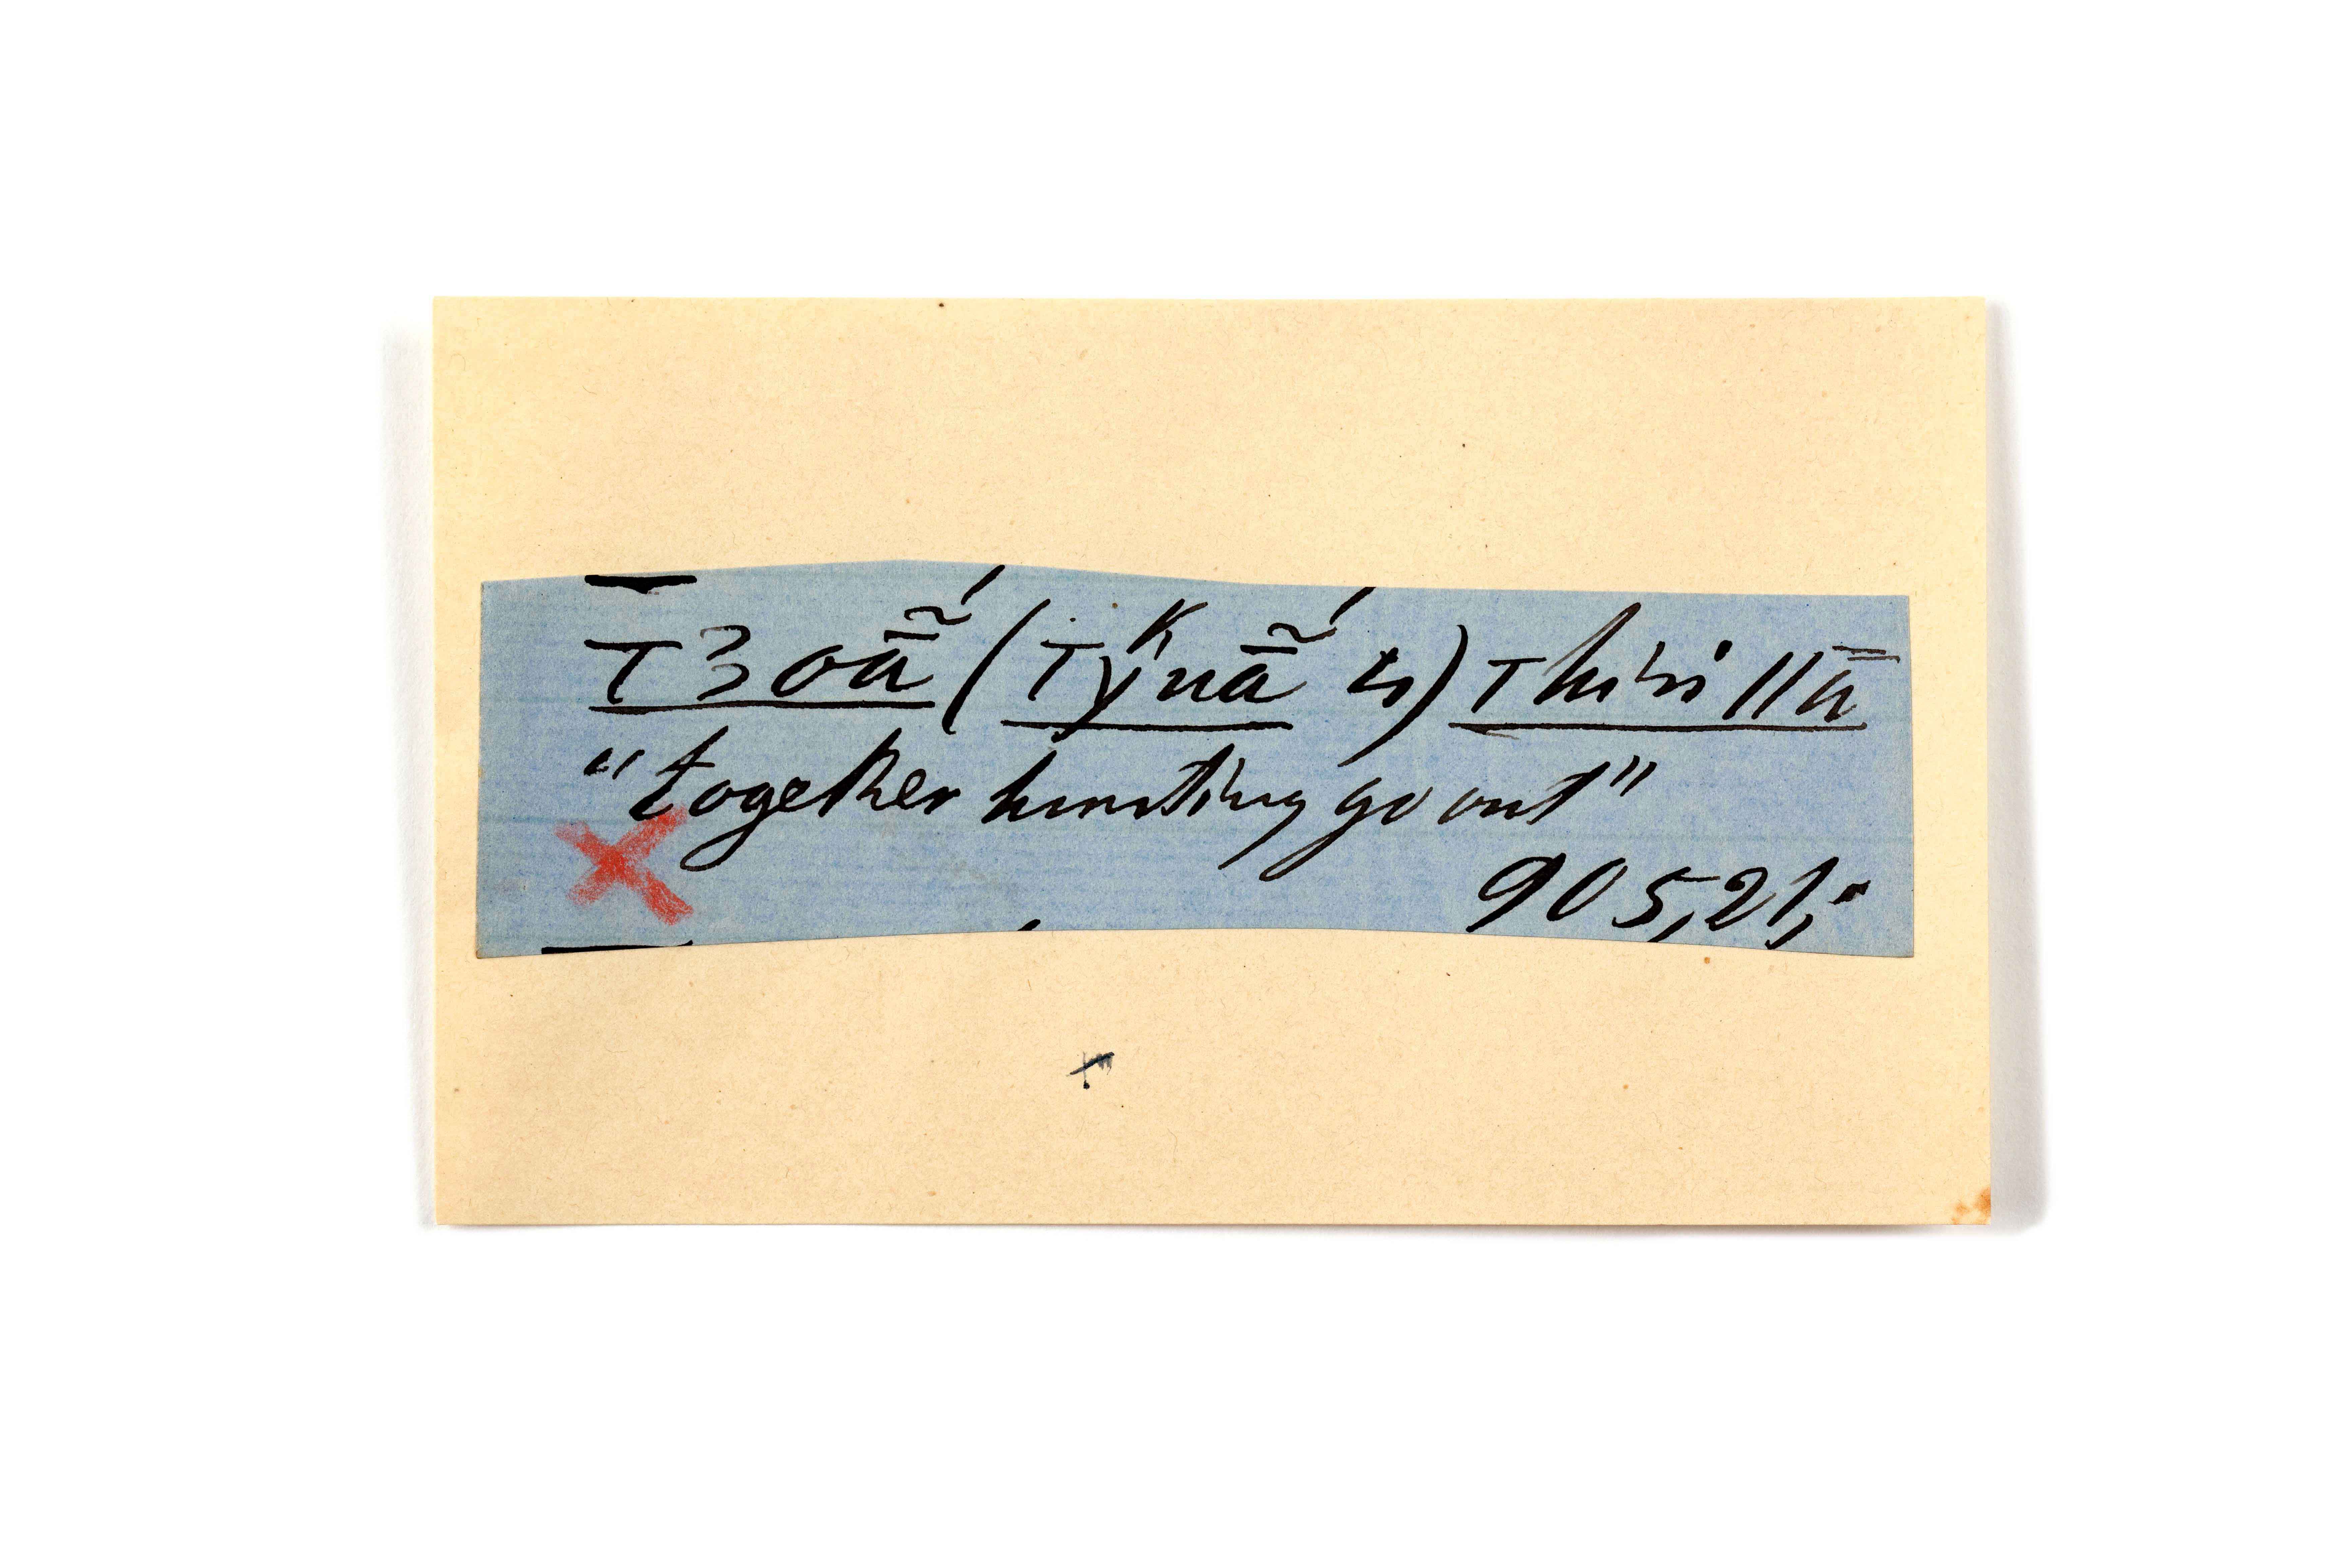 Tʒoā̃́ (Tyᴷuā̃́ ꜧ) Thi'si //ā̿
"together hunting go out"
905,21;